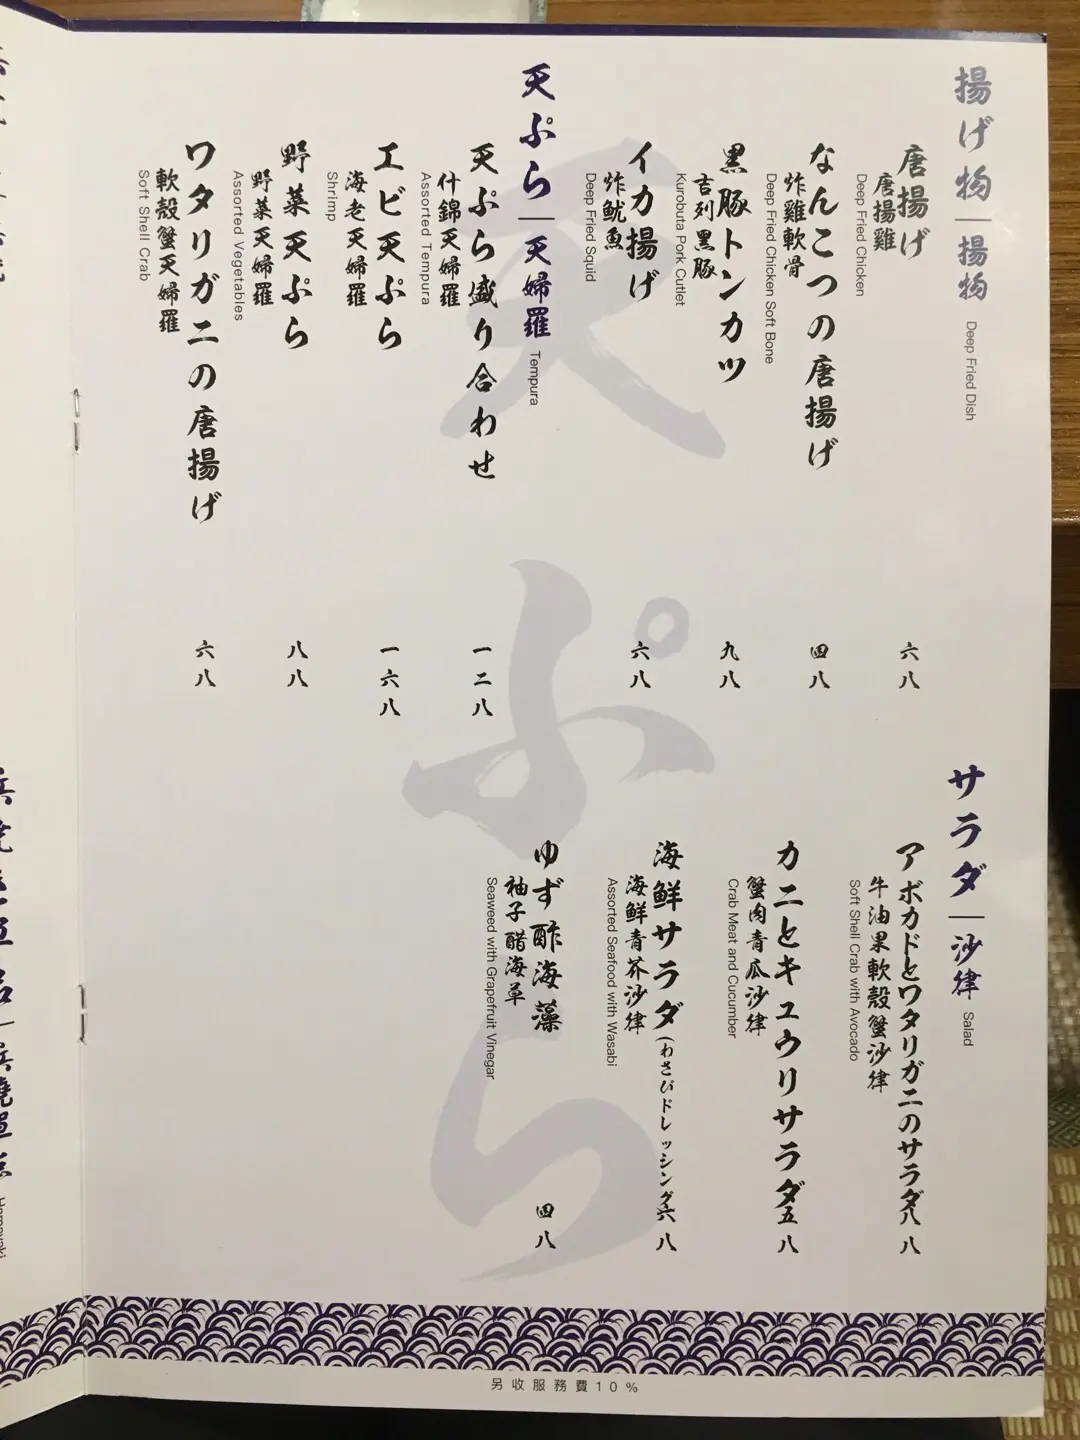 揚げ物 揚物 Deep Fried Dish
唐揚げ
唐揚雞
Deep Fried Chicken
六八
なんこつの唐揚げ
炸雞軟骨
Deep Fried Chicken Soft Bone
四八
黒豚トンカツ
吉列黑豚
Kurobuta Pork Cutlet
九八
イカ揚げ
炸魷魚
Deep Fried Squid
六八
天ぷら 天婦羅 Tempura
天ぷら盛り合わせ
什錦天婦羅
Assorted Tempura
一二八
エビ天ぷら
海老天婦羅
Shrimp
一六八
野菜天ぷら
野菜天婦羅
Assorted Vegetables
八八
ワタリガニの唐揚げ
軟殼蟹天婦羅
Soft Shell Crab
六八
サラダ 沙律 Salad
アボカドとワタリガニのサラダ 八八
牛油果軟殼蟹沙律
Soft Shell Crab with Avocado
カニとキュウリサラダ 五八
蟹肉青瓜沙律
Crab Meat and Cucumber
海鮮サラダ(わさびドレッシング 六八
海鮮青芥沙律
Assorted Seafood with Wasabi
ゆず酢海藻
柚子醋海草
Seaweed with Grapefruit Vinegar
四八
天ぷら
另收服務費10%